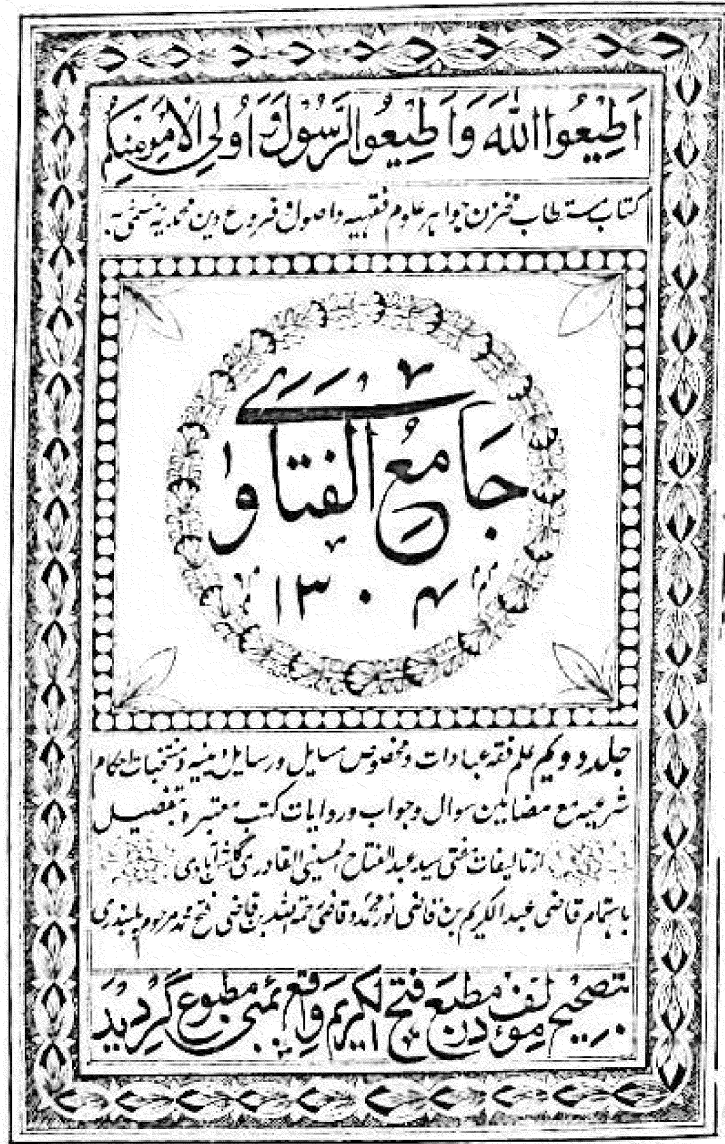 اَطِيعُوا اللّٰهَ وَاَطِيعُوا الرَّسُوْلَ وَاُولِی الْاَمْرِ مِنْكُمْ
کتاب مستطاب مخزن جواهر علوم فقهیه و اصول و فروع دین محمدیه مسمی به
جَامِعُ الْفَتَاوٰے
۱۳۰۴
جلد دویم علم فقه عبادات و مخصوص مسایل و رسایل دینیه و منتخبات احکام
شرعیه مع مضامین سوال و جواب و روایات کتب معتبره بتفصیل
از تالیفات مفتی سید عبدالفتاح الحسینی القادری گلشن آبادی
باهتمام قاضی عبدالکریم بن قاضی نور محمد و قاضی رحمة الله بن قاضی فتح محمد مرحوم پلبندری
بتصحیح مؤلف در مطبع فتح الکریم واقع بمبئی مطبوع گردید